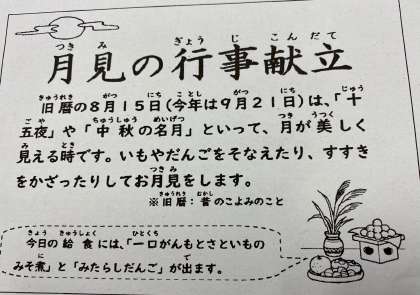 月見の行事献立
旧暦の8月15日(今年は9月21日)は、「十
五夜」や「中秋の名月」といって、月が美しく
見える時です。いもやだんごをそなえたり、すすき
をかざったりしてお月見をします。
※旧暦：昔のこよみのこと
今日の給食には、「一口がんもとさといもの
みそ煮」と「みたらしだんご」が出ます。